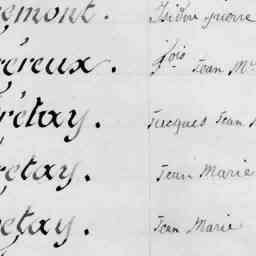 emont. Isidore pierre
éreux. fçois Jean M
rétay. Jacques Jean
retay. Jean Marie
etay. Jean Marie